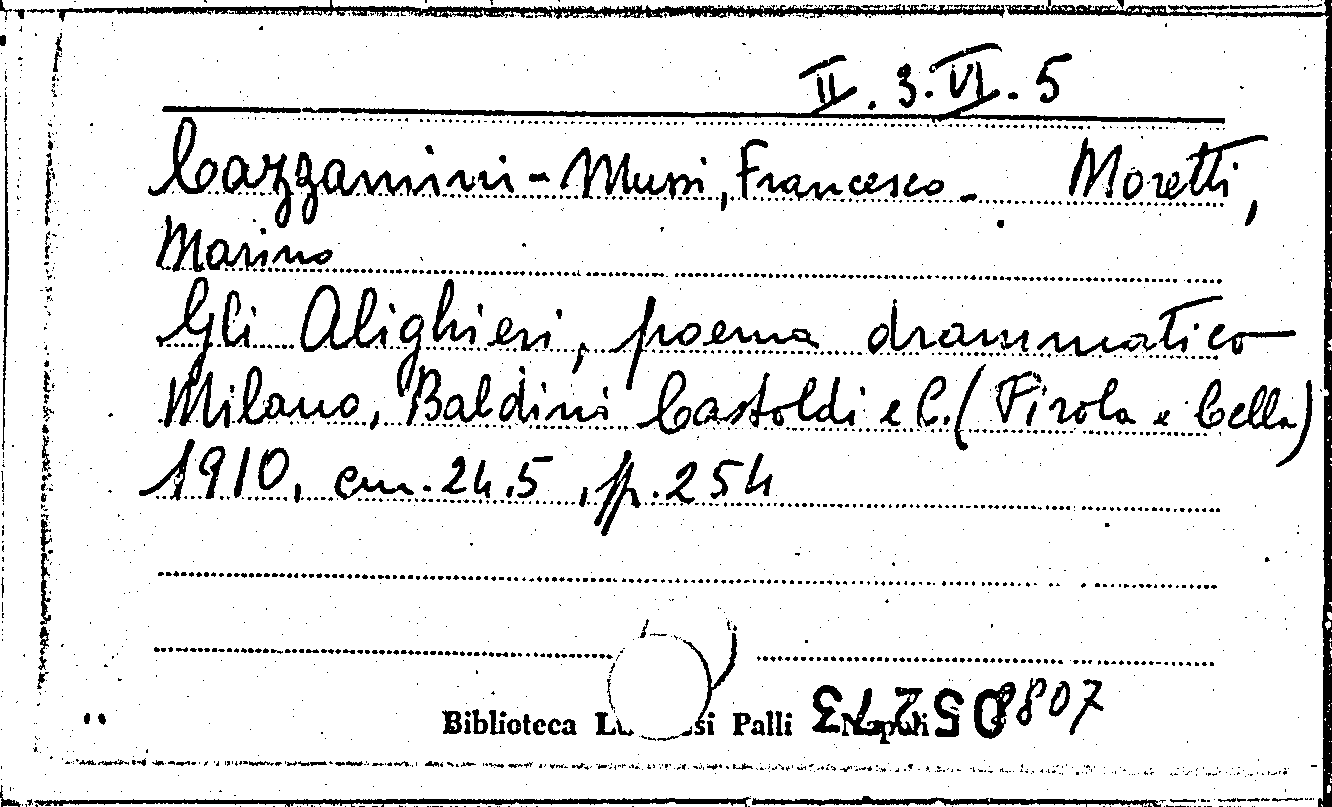 II. 3. VI. 5
Cazzamini-Mussi, Francesco - Moretti,
Marino
Gli Alighieri, poema drammatico
Milano, Baldini Castoldi e C. (Pirola e Cella)
1910, cm. 24,5, pp. 254
8807
Biblioteca Palli Napoli